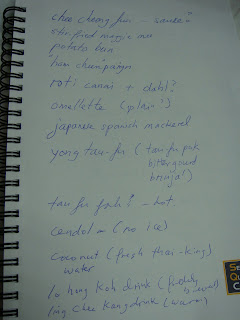 chee cheong fun -
stir fried maggie mee
potato bun
ham champaign
roti canai + dahl?
omellette (plain?)
japanese spanish mackerel
yong tau-fu (tau fu puk
bittergourd
brinjal)
tau fu fah? - hot
cendol - (no ice)
coconut (fresh thai-king)
water
lo hang koh drink (freshly brewed)
ling chee kang drink (warm)